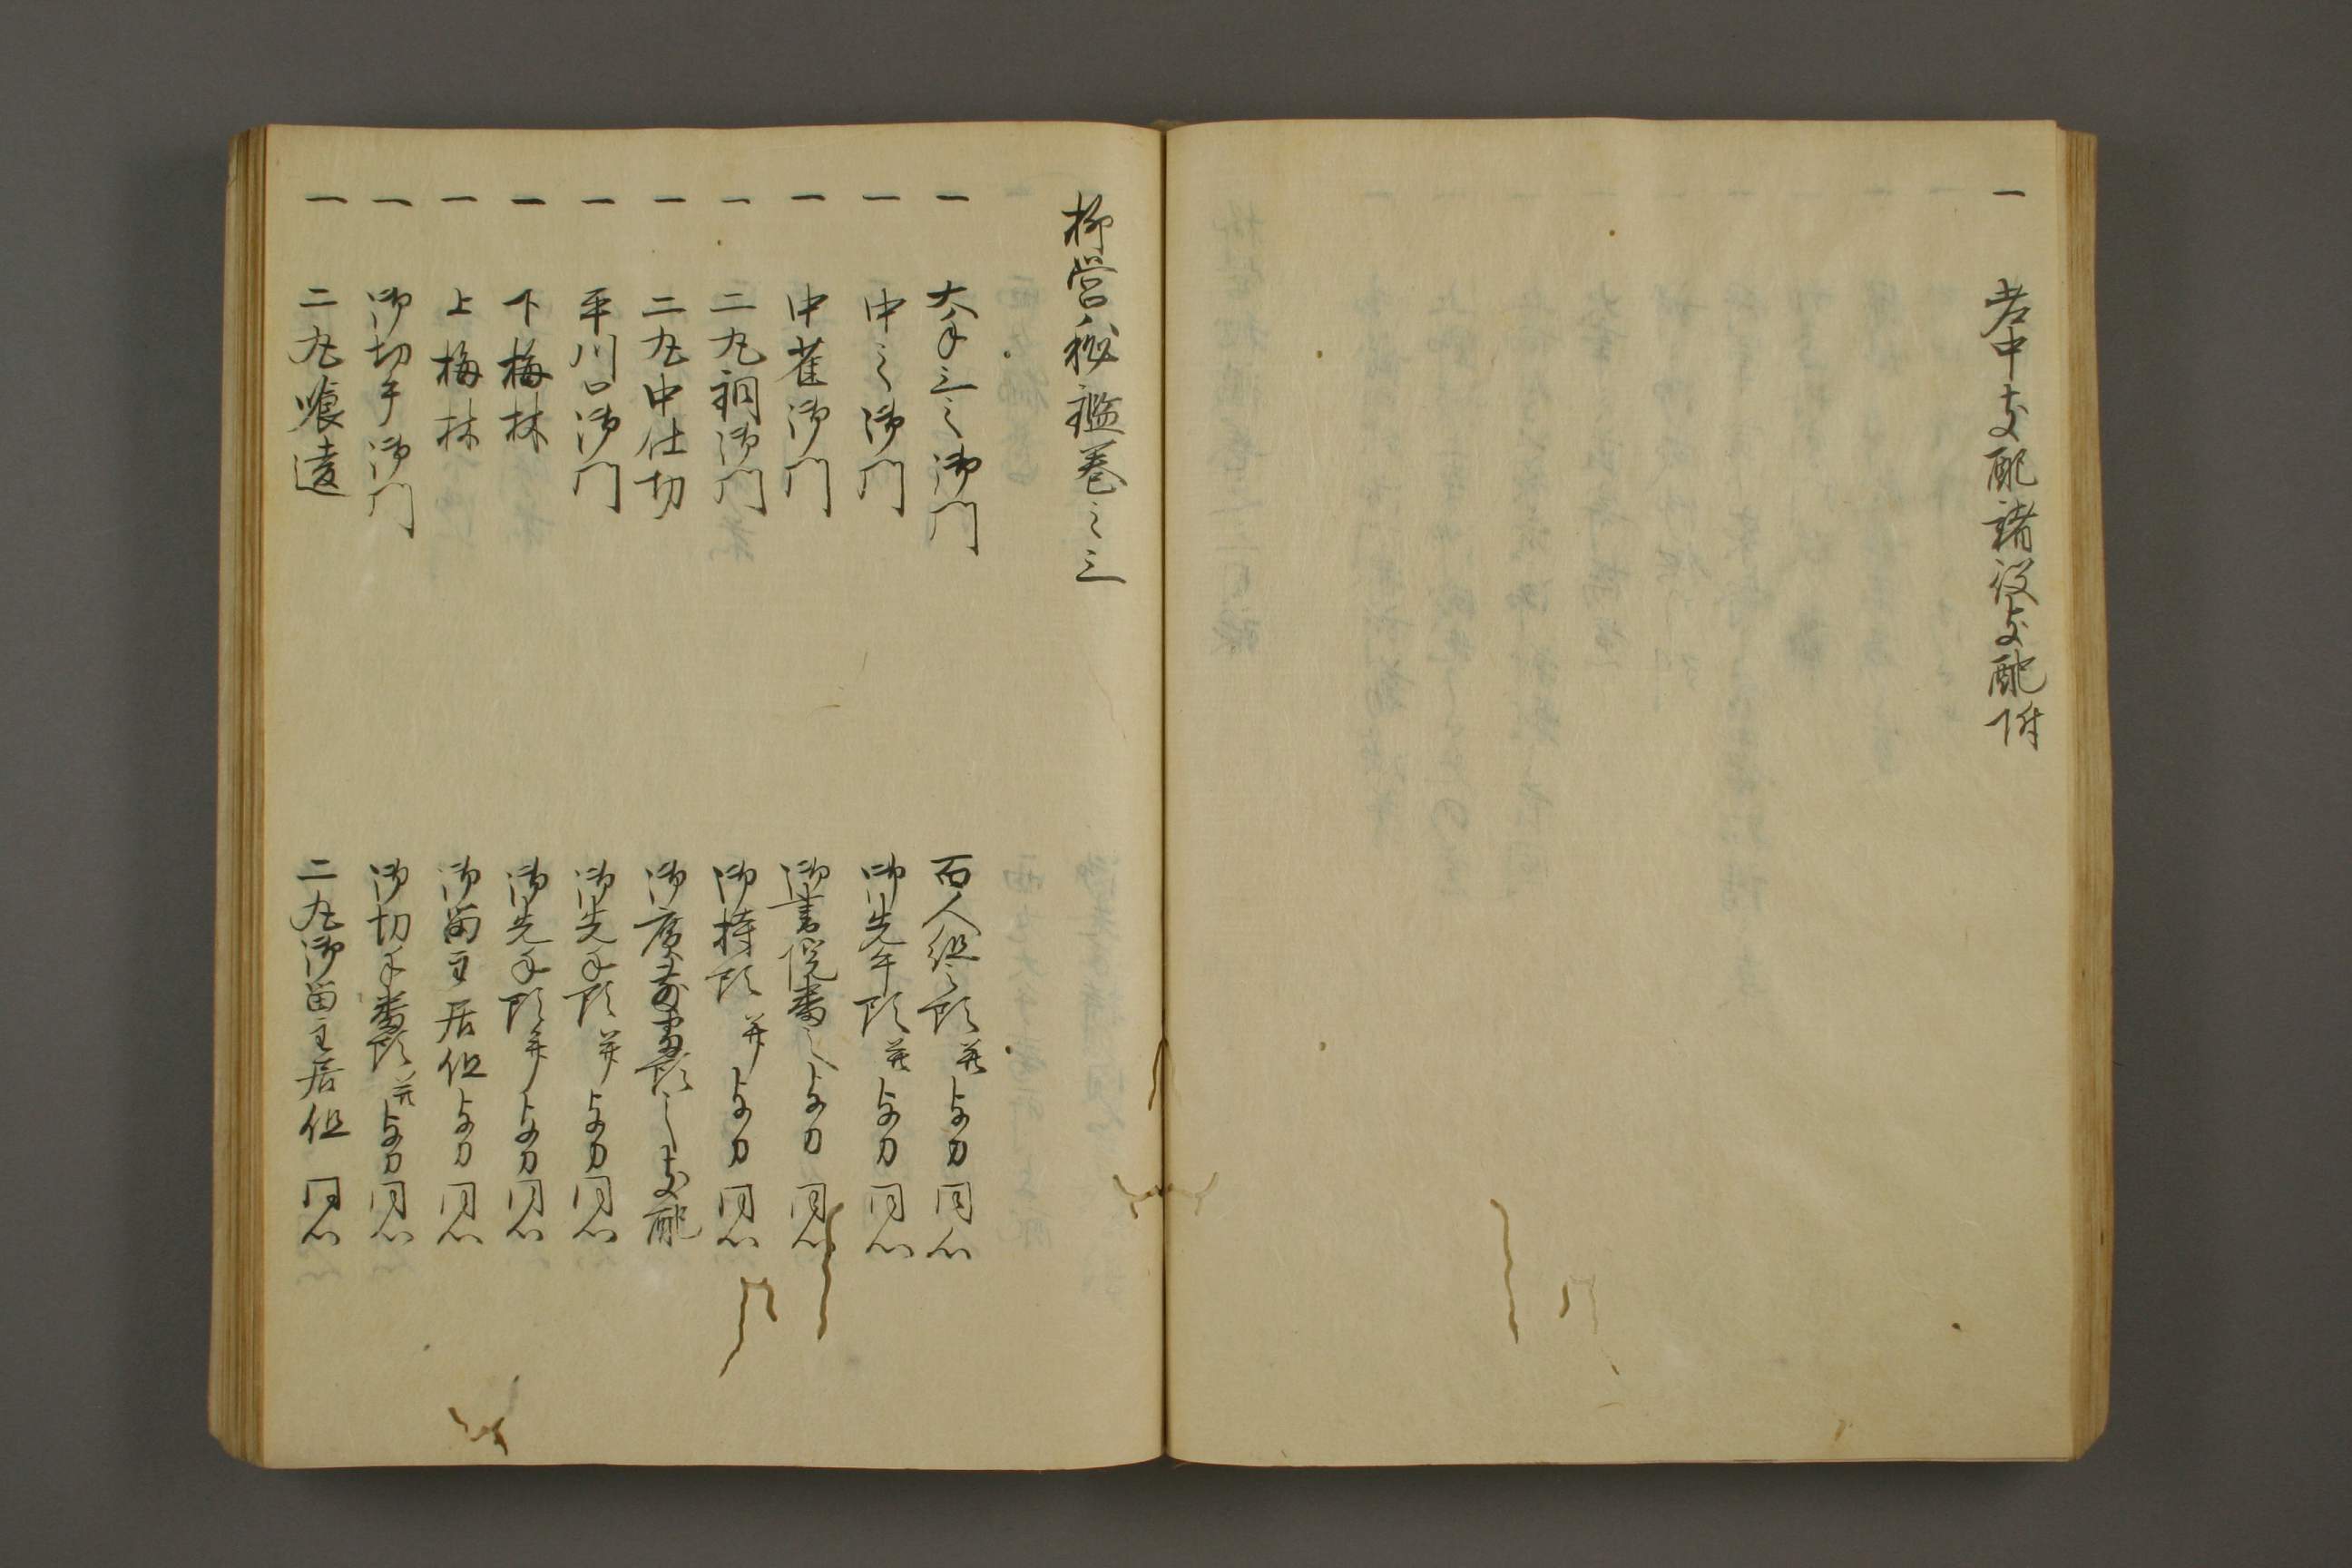 一　老中支配諸役支配附
柳営秘鑑巻之三
一　大手三之御門　百人組之頭并与力同心
一　中之御門　御先手頭并与力同心
一　中雀御門　御書院番之与力同心
一　二丸銅御門　御持頭并与力同心
一　二丸中仕切　御広敷番頭之支配
一　平川口御門　御先手頭并与力同心
一　下梅林　御先手頭并与力同心
一　上梅林　御留主居組与力同心
一　御切手御門　御切手番頭并与力同心
一　二丸喰違　二丸御留主居組同心